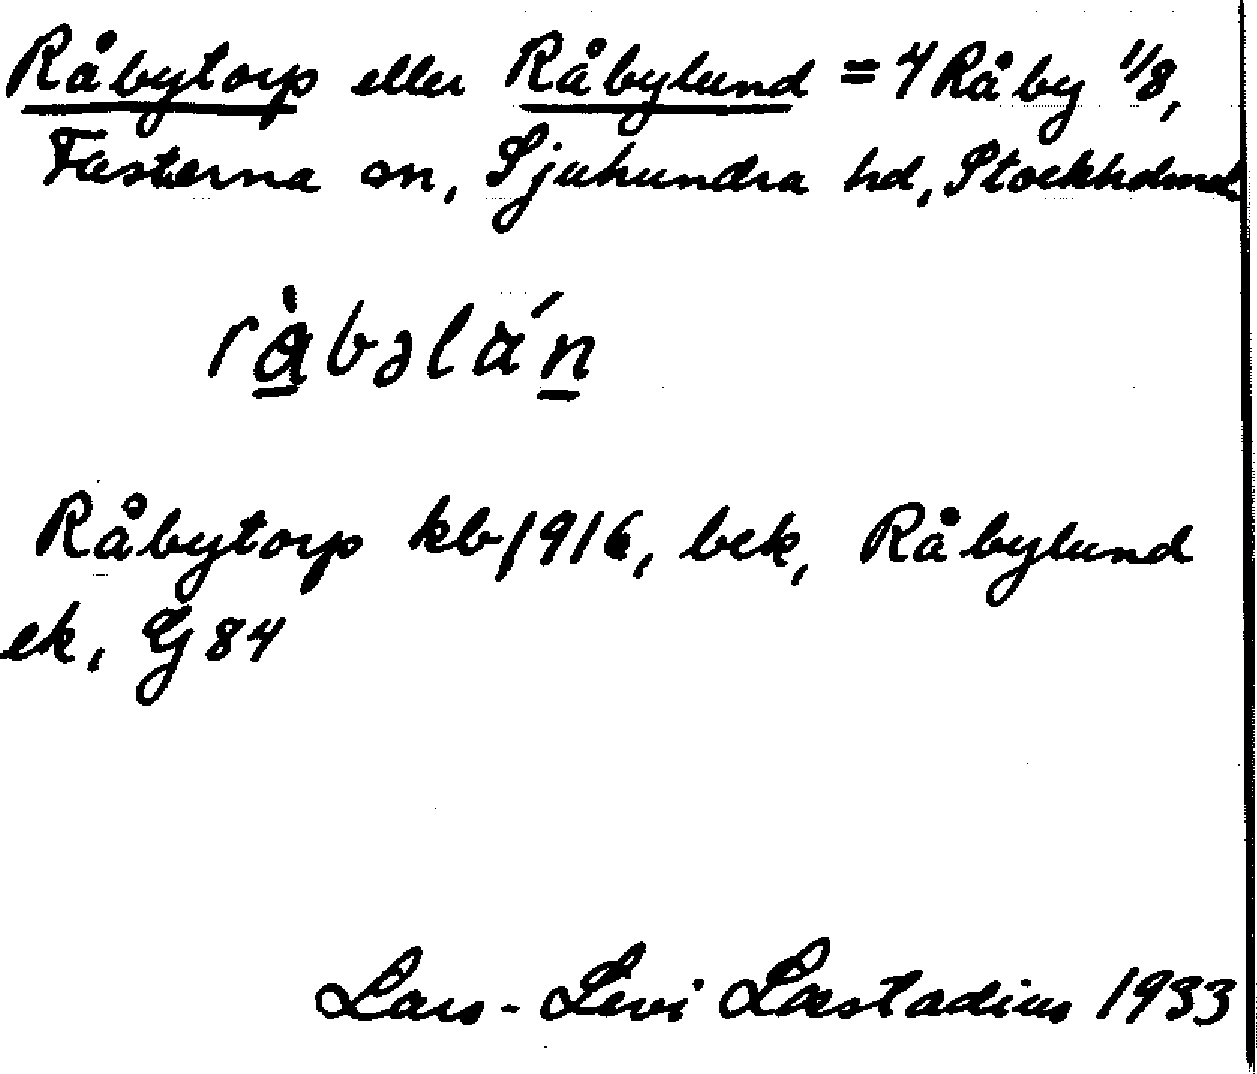 Råbytorp eller Råbylund = 4 Råby 1/8,
Fasterna sn, Sjuhundra hd, Stockholms
råbəlán
Råbytorp kb 1916, bek, Råbylund
ek, G 84
Lars-Levi Læstadius 1933